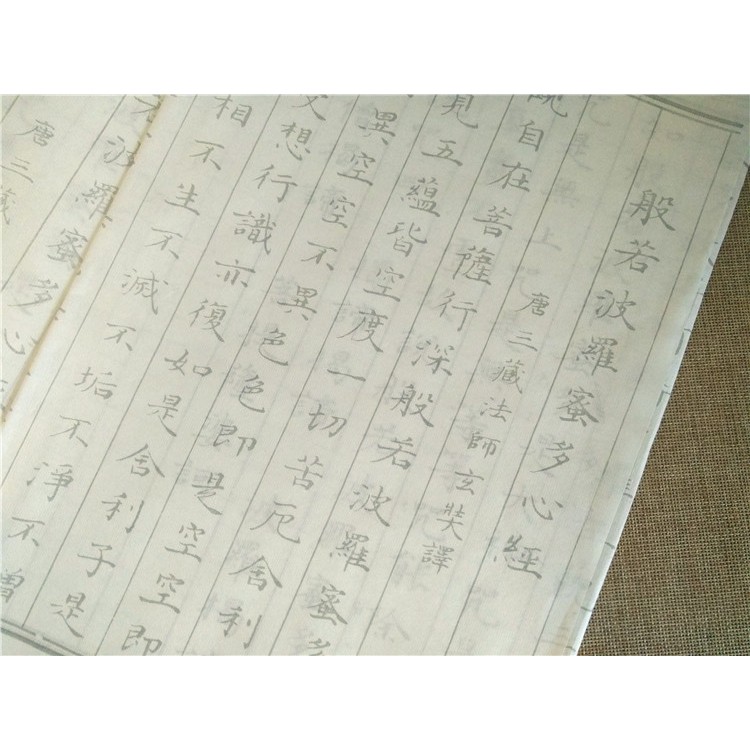 般若波羅蜜多心經
唐三藏法師玄奘譯
觀自在菩薩行深般若波羅蜜多
見五蘊皆空度一切苦厄舍利
異空空不異色色即是空空即
受想行識亦復如是舍利子是
相不生不滅不垢不淨不
若波羅蜜多心
唐三藏